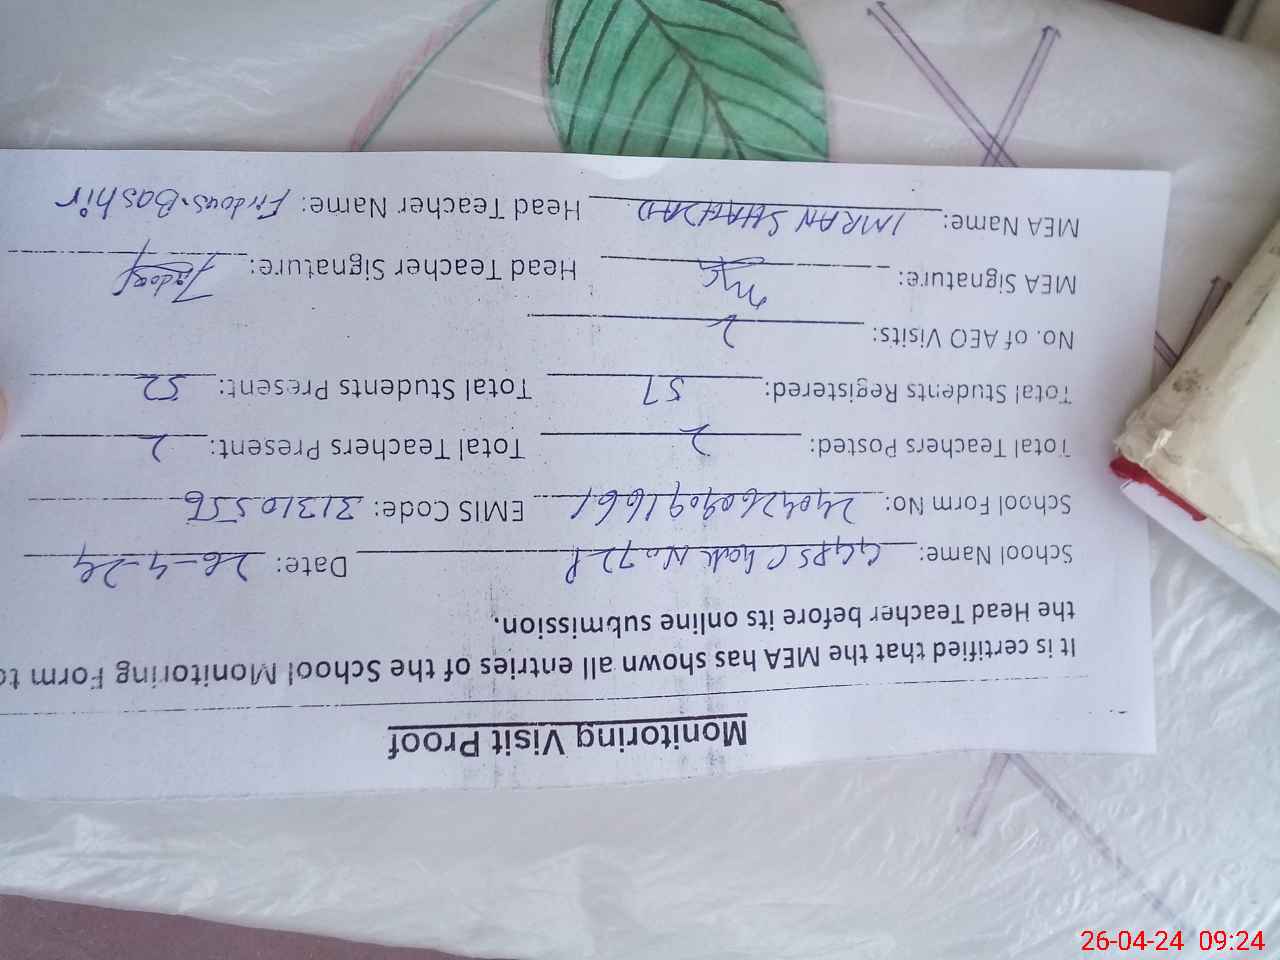 Monitoring Visit Proof
It is certified that the MEA has shown all entries of the School Monitoring Form to
the Head Teacher before its online submission.
School Name: GGPS Chak No 72 P Date: 26-4-24
School Form No: EMIS Code: 31310556
Total Teachers Posted: 2 Total Teachers Present: 2
Total Students Registered: 57 Total Students Present: 52
No. of AEO Visits: 2
MEA Signature: Head Teacher Signature:
MEA Name: IMRAN SHAHZAD Head Teacher Name: Firdous Bashir
26-04-24 09:24